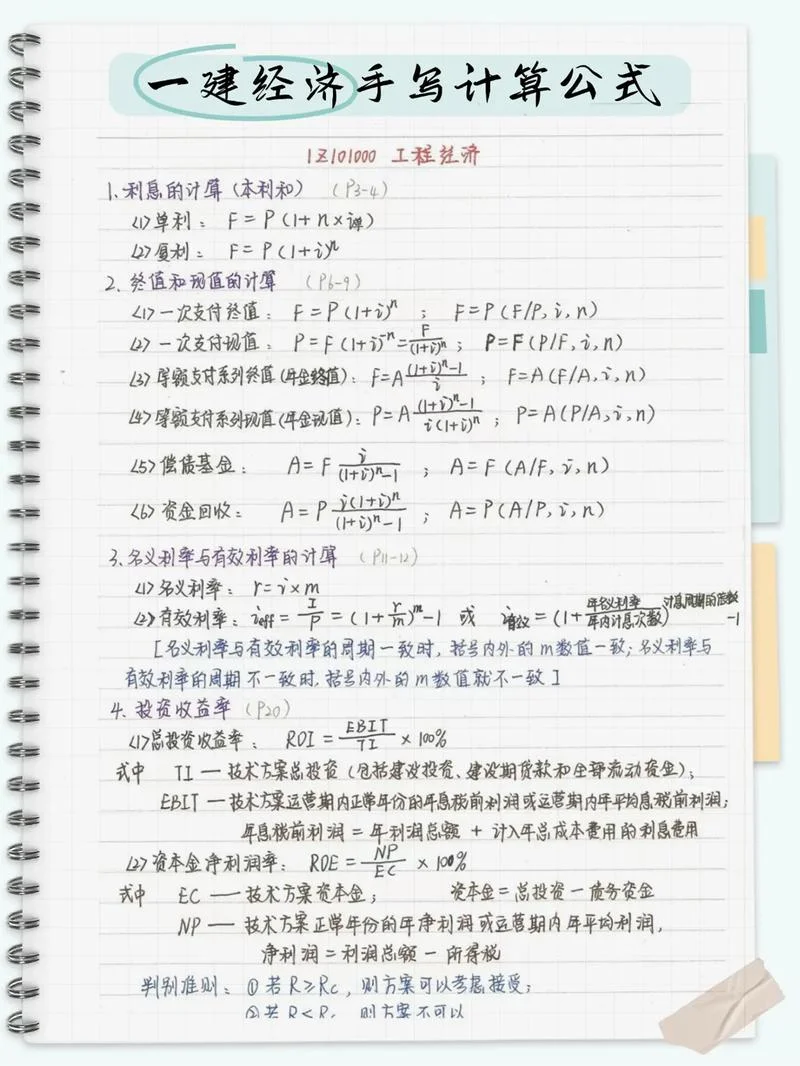 一建经济手写计算公式
1Z101000 工程经济
1.利息的计算(本利和) (P3-4)
(1)单利: F=P(1+n×i单)
(2)复利: F=P(1+i)^n
2.终值和现值的计算 (P6-9)
(1)一次支付终值: F=P(1+i)^n ; F=P(F/P,i,n)
(2)一次支付现值: P=F(1+i)^-n=F/(1+i)^n ; P=F(P/F,i,n)
(3)等额支付系列终值(年金终值): F=A((1+i)^n-1)/i ; F=A(F/A,i,n)
(4)等额支付系列现值(年金现值): P=A((1+i)^n-1)/(i(1+i)^n) ; P=A(P/A,i,n)
(5)偿债基金: A=F i/((1+i)^n-1) ; A=F(A/F,i,n)
(6)资金回收: A=P(i(1+i)^n)/((1+i)^n-1) ; A=P(A/P,i,n)
3.名义利率与有效利率的计算 (P11-12)
(1)名义利率: r=i×m
(2)有效利率: i eff=I/P=(1+r/m)^m-1 或 i有效=(1+年名义利率/年内计息次数)^计息周期的倍数-1
[名义利率与有效利率的周期一致时,括号内外的m数值一致;名义利率与
有效利率的周期不一致时,括号内外的m数值就不一致]
4.投资收益率(P20)
(1)总投资收益率: ROI=EBIT/TI×100%
式中 TI—技术方案总投资(包括建设投资、建设期贷款和全部流动资金);
EBIT—技术方案运营期内正常年份的年息税前利润或运营期内年平均息税前利润;
年息税前利润=年利润总额+计入年总成本费用的利息费用
(2)资本金净利润率: ROE=NP/EC×100%
式中 EC—技术方案资本金; 资本金=总投资-债务资金
NP—技术方案正常年份的年净利润或运营期内年平均利润,
净利润=利润总额-所得税
判别准则: ①若R≥Rc,则方案可以考虑接受;
②若R<Rc 则方案不可以